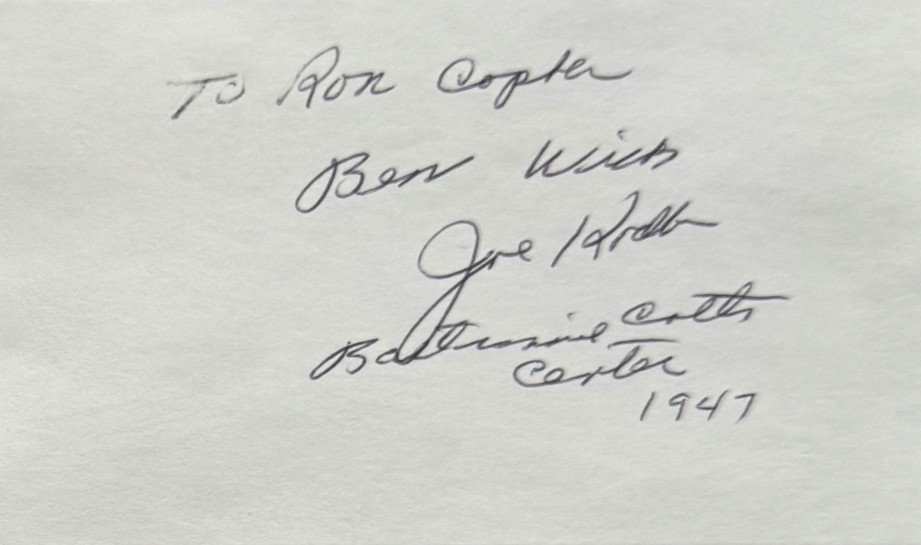 To Ron Copter
Best Wishes
Joe
Baltimore Colts
Center
1947